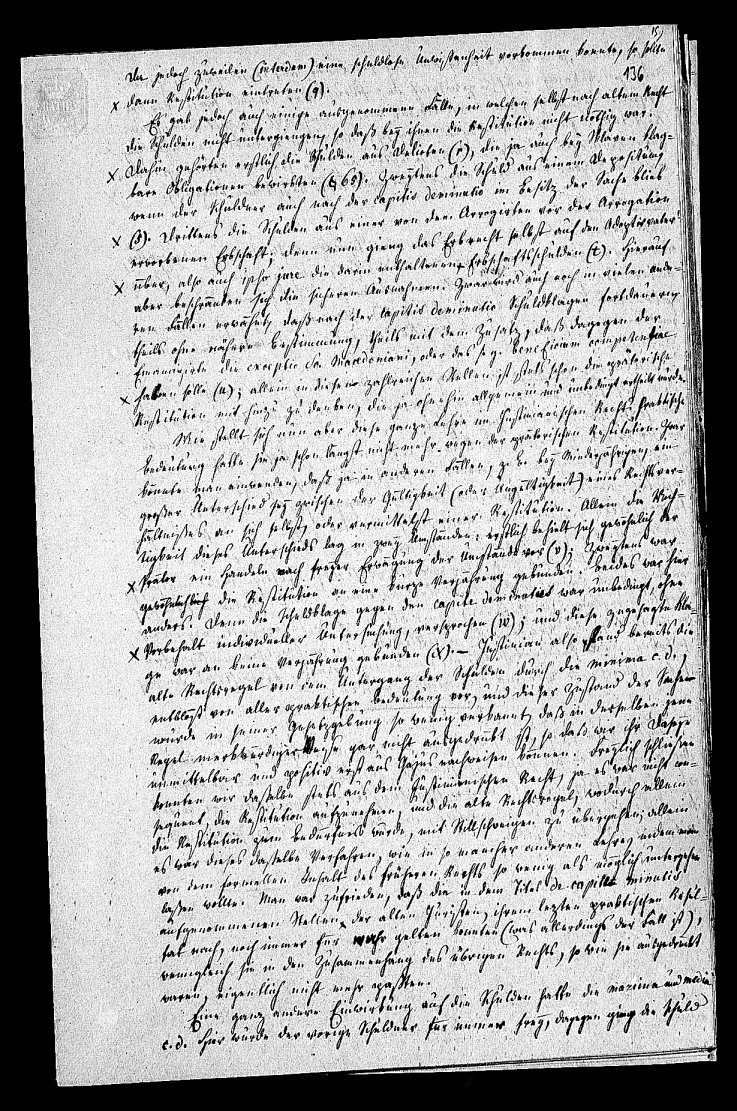 15)
136
Da jedoch zuweilen (interdum) eine schuldlose Unwissenheit vorkommen konnte, so sollte
x dann Restitution eintreten (q).
Es gab jedoch auch einige ausgenommene Fälle, in welchen selbst nach altem Recht
die Schulden nicht untergiengen, so daß bey ihnen die Restitution nicht nöthig war.
x Dahin gehörten erstlich die Schulden aus Delicten (r), die ja auch bey Sklaven klag-
bare Obligationen bewirkten (§ 65). Zweytens die Schuld aus einem Depositum
wenn der Schuldner auch nach der capitis deminutio im Besitz der Sache blieb
x (s). Drittens die Schulden aus einer von dem Arrogirten vor der Arrogation
erworbenen Erbschaft; denn nun gieng das Erbrecht selbst auf den Adoptivvater
x über, also auch ipso jure die darin enthaltenen Erbschaftsschulden (t). Hierauf
aber beschränken sich die sicheren Ausnahmen. Zwar wird auch noch in vielen ande-
ren Fällen erwähnt, daß nach der capitis deminutio Schuldklagen fortdauern,
theils ohne nähere Bestimmung, theils mit dem Zusatz, daß dagegen der
Emancipirte die exceptio Sc. Macedoniani, oder das s. g. beneficium competentiae
x haben solle (u); allein in diesen zahlreichen Stellen ist stets schon die prätorische
Restitution mit hinzu zu denken, die ja ohnehin allgemein und unbedingt ertheilt wurde.
Wie stellt sich nun aber diese ganze Lehre im Justinianischen Recht? Praktische
Bedeutung hatte sie ja schon längst nicht mehr wegen der prätorischen Restitution. Zwar
könnte man einwenden, daß ja in anderen Fällen, z. B. bey Minderjährigen, ein
großer Unterschied sey zwischen der Gültigkeit (oder Ungültigkeit) eines Rechtsver-
hältnisses an sich selbst, oder vermittelst einer Restitution. Allein die Wich-
tigkeit dieses Unterschieds lag in zwey Umständen: erstlich behielt sich gewöhnlich der
x Prätor ein Handeln nach freyer Erwägung der Umstände vor (v); Zweytens war
gewöhnlich die Restitution an eine kurze Verjährung gebunden. Beides war hier
anders. Denn die Schuldklage gegen den capite deminutus war unbedingt, ohne
x Vorbehalt individueller Untersuchung, versprochen (w); und diese zugesagte Kla-
ge war an keine Verjährung gebunden (x). – Justinian also fand bereits die
alte Rechtsregel von dem Untergang der Schulden durch die minima c. d.,
entblößt von aller praktischen Bedeutung vor, und dieser Zustand der Sachen
wurde in seiner Gesetzgebung so wenig verkannt, daß in derselben jene
Regel merkwürdiger Weise gar nicht ausgedrückt ist, so daß wir ihr Daseyn
unmittelbar und positiv erst aus Gajus nachweisen können. Freylich schließen
konnten wir dasselbe stets aus dem Justinianischen Recht, ja es war nicht con-
sequent, die Restitution aufzunehmen, und die alte Rechtsregel, wodurch allein
die Restitution zum Bedürfniß wurde, mit Stillschweigen zu übergehen; allein
es war dieses dasselbe Verfahren, wie in so mancher anderen Lehre, indem man
von dem formellen Inhalt des früheren Rechts so wenig als möglich untergehen
lassen wollte. Man war zufrieden, daß die in dem Titel de capite minutis
aufgenommenen Stellen der alten Juristen, ihrem letzten praktischen Resul-
tat nach, noch immer für wahr gelten konnten (was allerdings der Fall ist),
wenngleich sie in den Zusammenhang des übrigen Rechts, so wie sie ausgedrückt
waren, eigentlich nicht mehr paßten.
Eine ganz andere Einwirkung auf die Schulden hatte die maxima und media
c. d. Hier wurde der vorige Schuldner für immer frey, dagegen gieng die Schuld